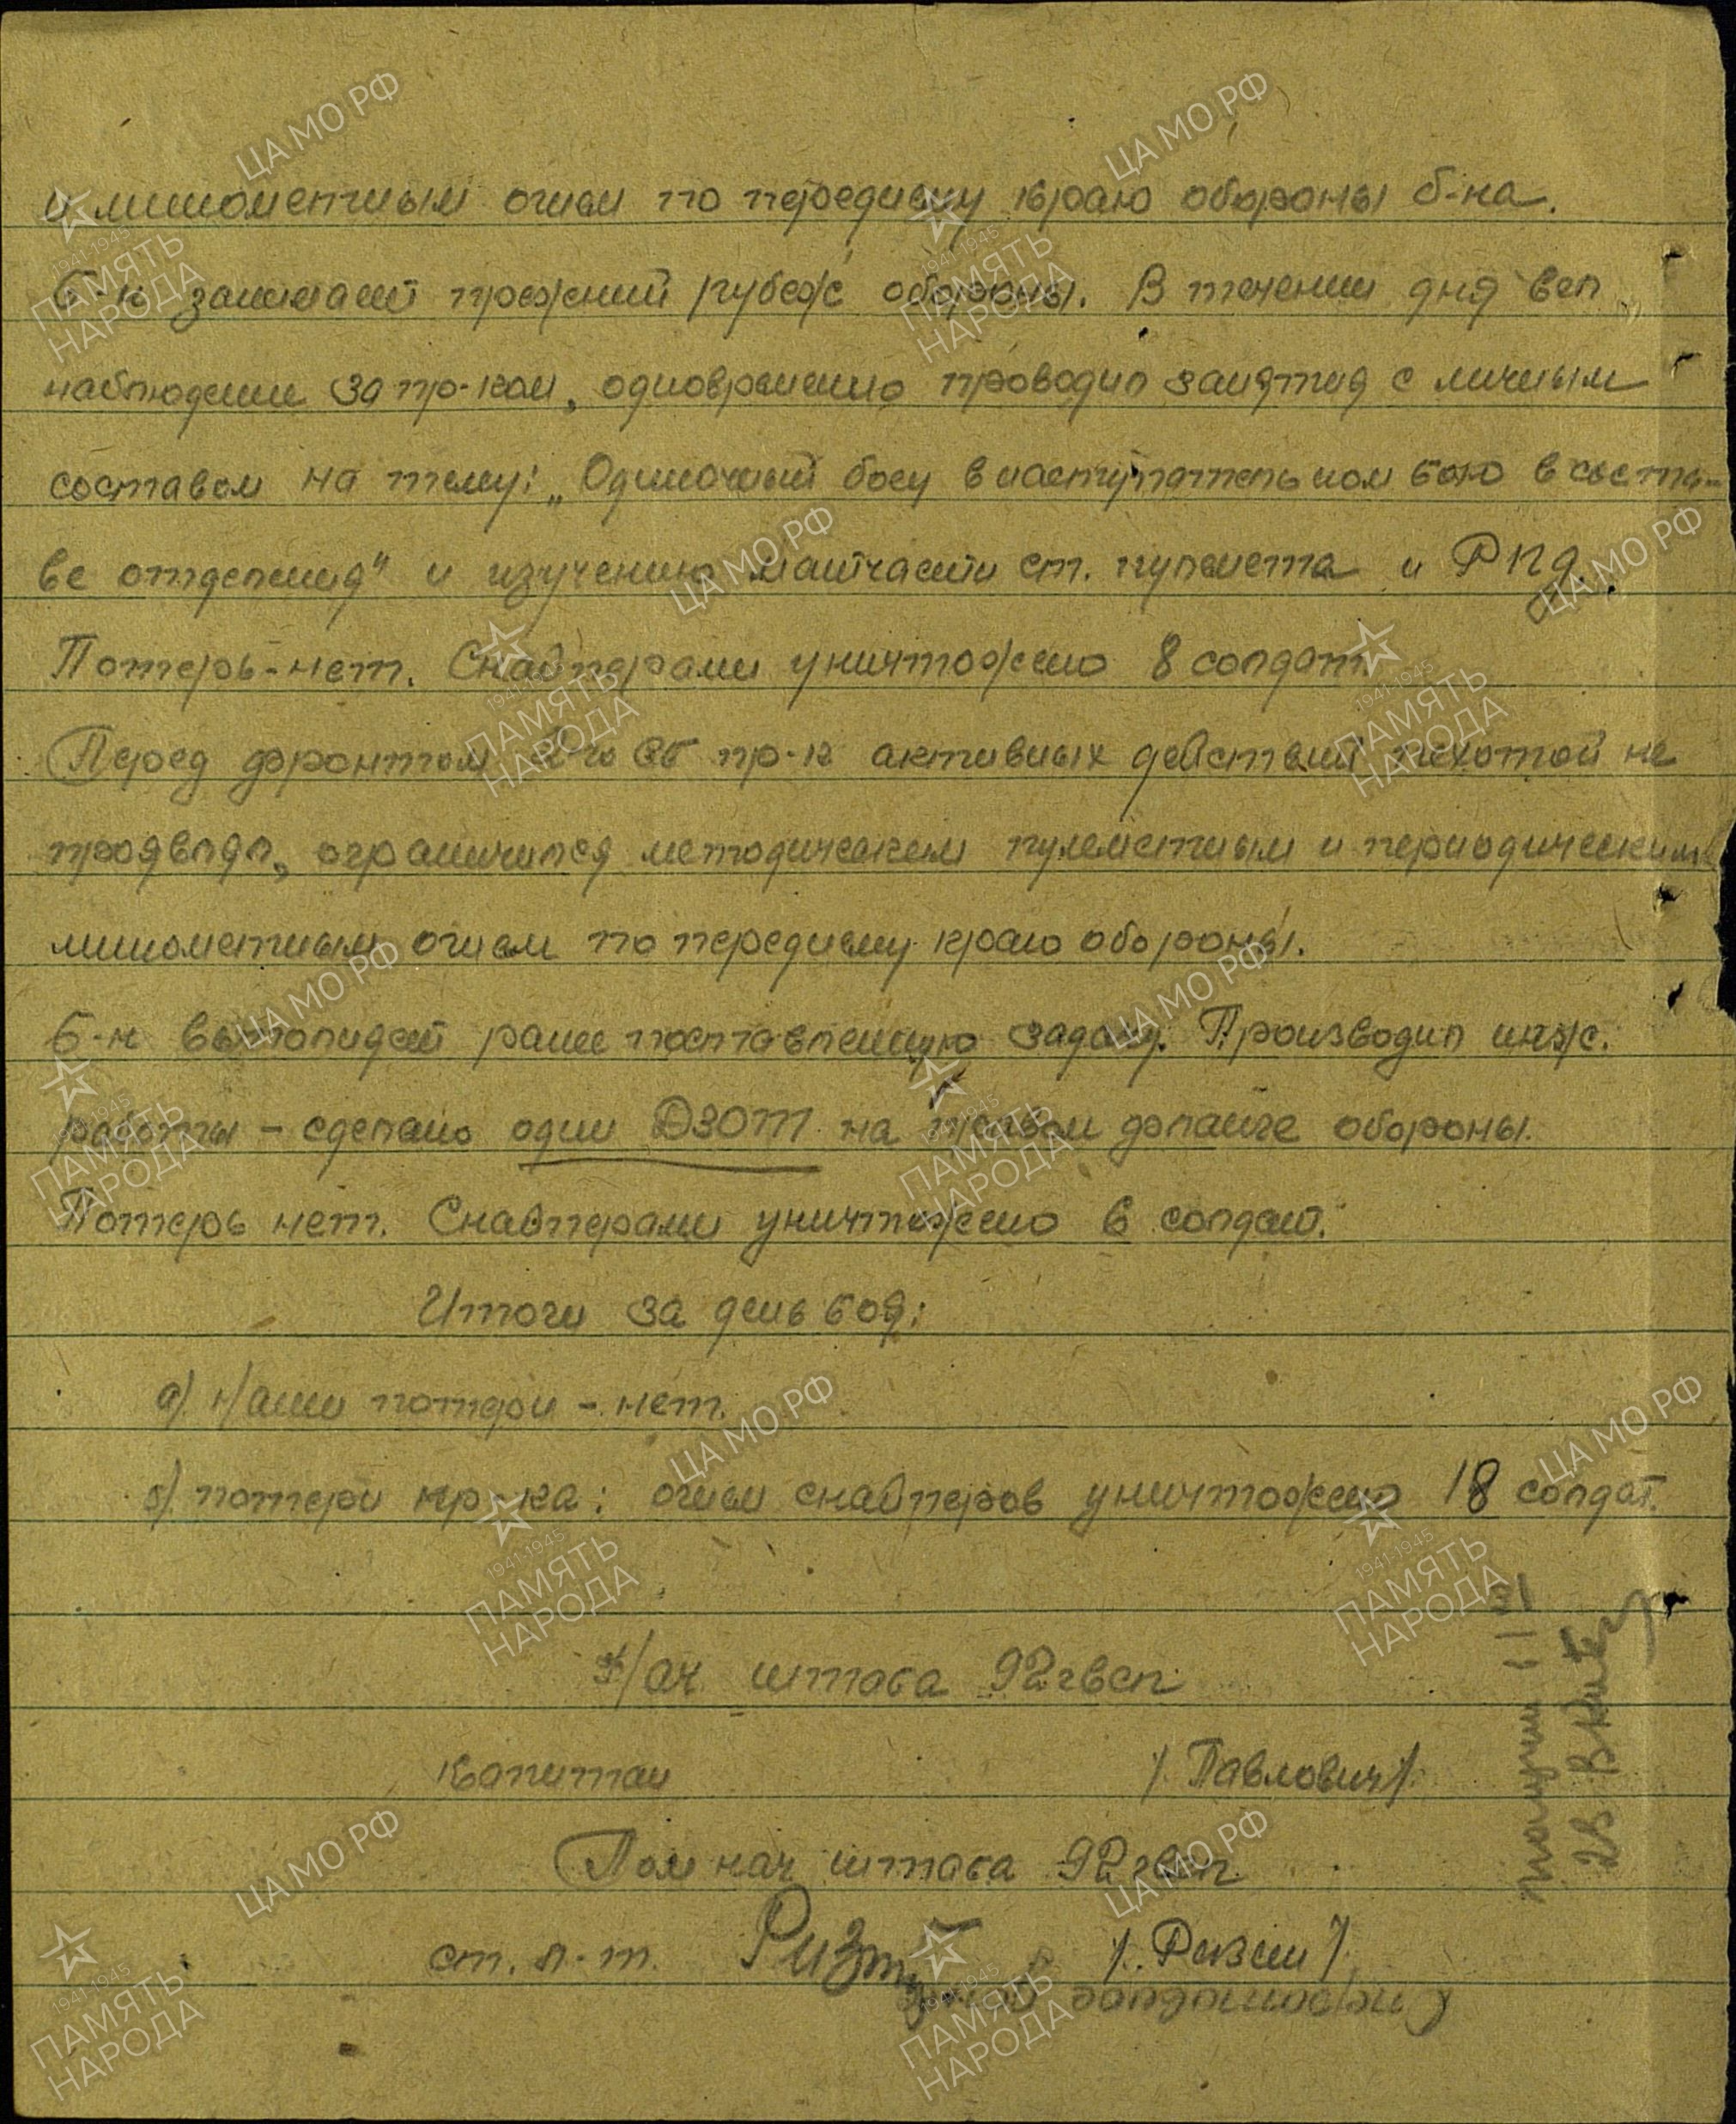 и минометным огнем по переднему краю обороны б-на.
б-н занимает прежний рубеж обороны. В течении дня вел
наблюдение за пр-ком, одновременно проводил занятия с личным
составом на тему: „Одиночный боец в наступательном бою в соста-
ве отделения" и изучению матчасти ст. пулемета и РПД.
Потерь-нет. Снайперами уничтожено 8 солдат.
Перед фронтом 2-го СБ пр-к активных действий пехотой не
проявлял, ограничился методическим пулеметным и периодическим
минометным огнем по переднему краю обороны.
б-н выполняет ранее поставленную задачу. Производил инж.
работы - сделано один ДЗОТ на правом фланге обороны.
Потерь нет. Снайперами уничтожено 6 солдат.
Итоги за день боя:
а). Наши потери - нет.
б). потери пр-ка: огнем снайперов уничтожено 18 солдат.
Нач. штаба 92 гвсп
капитан /. Павлович /.
Пом нач штаба 92 гвсп
ст. л-т. /. Ревзин /.
ЦА МО РФ
1941-1945
ПАМЯТЬ
НАРОДА